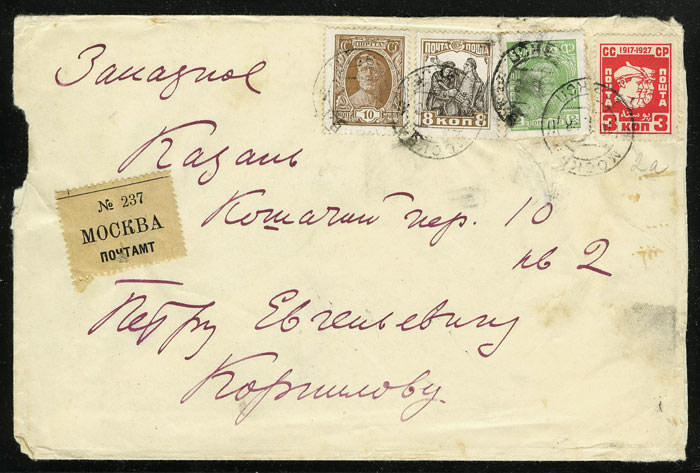 ПОЧТА
10
ПОЧТА ПОЧТА
8 КОП 8
СС 1917-1927 СР
ПОЧТА ПОЧТА
3 КОП 3
Казань
№ 237
МОСКВА
ПОЧТАМТ
Кошачий пер. 10
кв 2
Петру Евгеньевичу
Корнилову.
2а